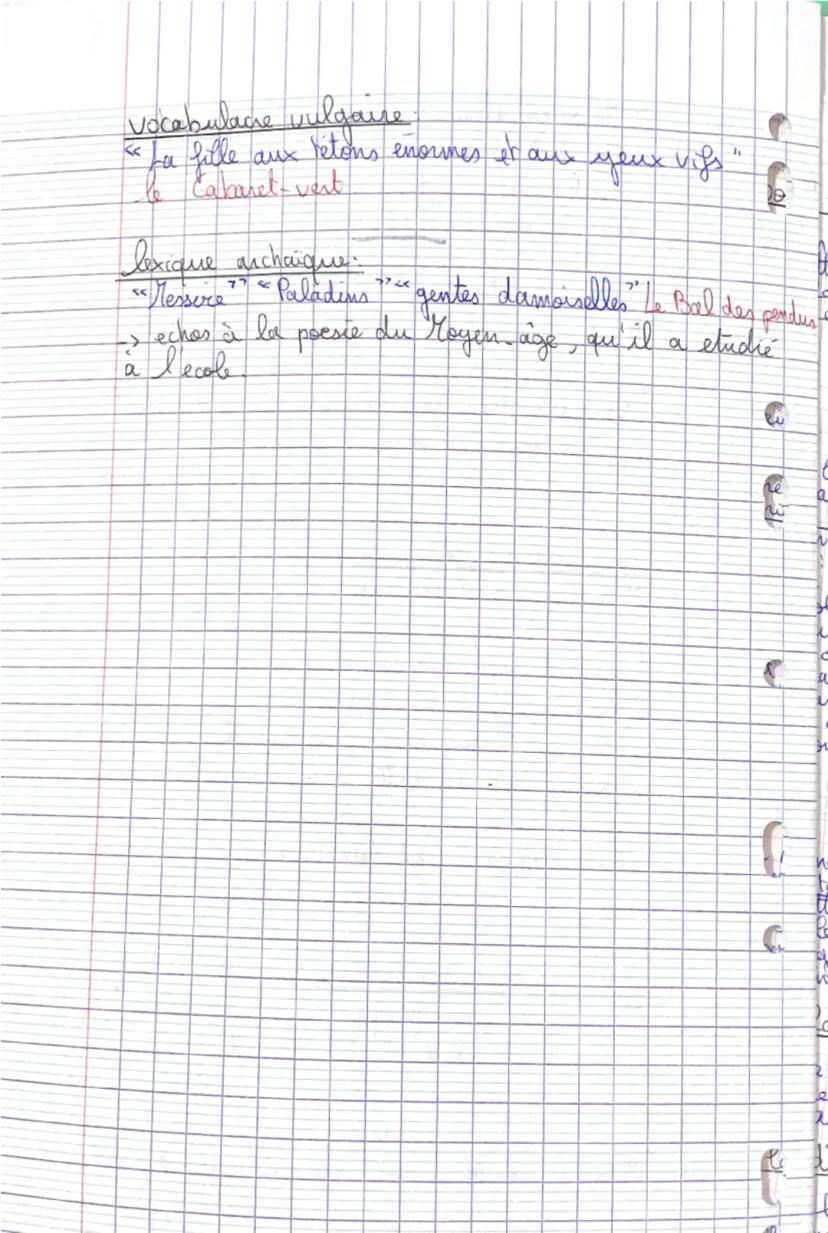 vocabulaire vulgaire.
"La fille aux tétons énormes et aux yeux vifs"
le Cabaret-vert
lexique archaïque:
"Messire" "Paladins" "gentes damoiselles" Le Bal des pendus
-> echos à la poesie du Moyen-âge, qu'il a etudié
à l'ecole.